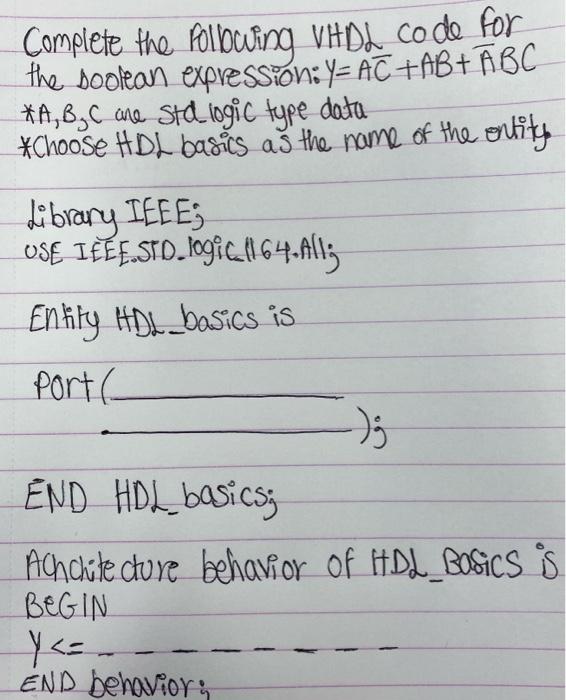 Complete the following VHDL code for
the boolean expression: Y= AC̅ +AB+ A̅BC
*A,B,C are std logic type data
*Choose HDL basics as the name of the entity
Library IEEE;
USE IEEE.STD_logic_1164.All;
Entity HDL_basics is
Port(____________
____________);
END HDL_basics;
Achchitecture behavior of HDL_BasicS is
BEGIN
Y<= _ _ _ _ _ _ _ _ _
END behavior;